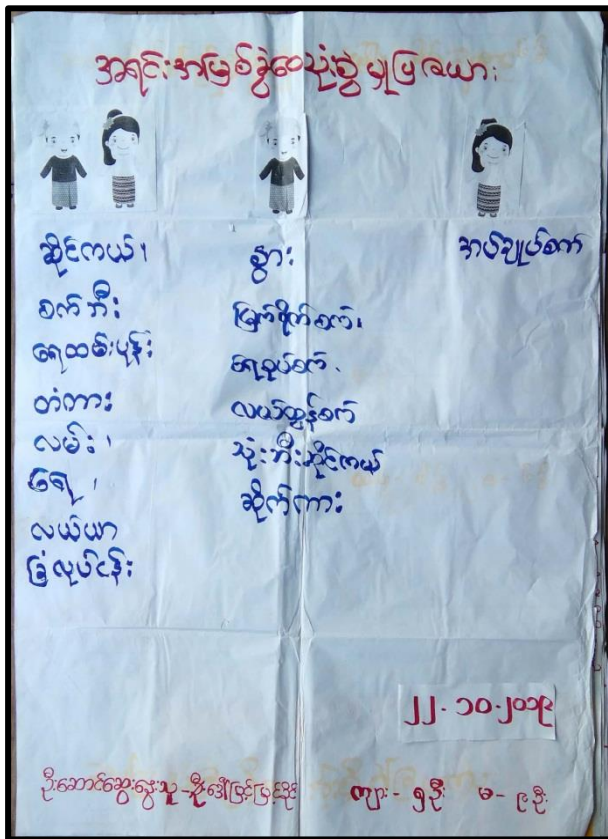 အရင်းအမြစ်ခွဲဝေသုံးစွဲမှုပြဇယား
ဆိုင်ကယ်၊
စက်ဘီး
ရေထမ်းပုန်း
တံကား
လမ်း၊
ရေ၊
လယ်ယာ
ခြံလုပ်ငန်း
နွား
မြက်ရိုက်စက်၊
ရေစုပ်စက်၊
လယ်ထွန်စက်
သုံးဘီးဆိုင်ကယ်
ဆိုက်ကား
အပ်ချုပ်စက်
၂၂-၁၀-၂၀၁၉
ဦးဆောင်ဆွေးနွေးသူ-
ကျား- ၅ဦး မ- ၉ဦး